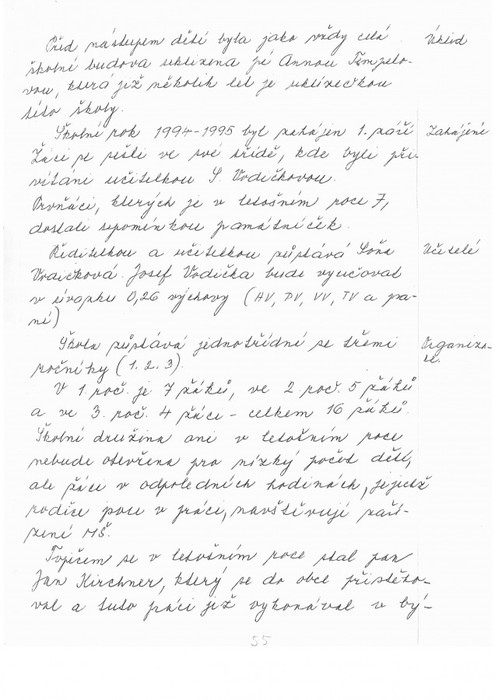 Před nástupem dětí byla jako vždy celá Úklid
školní budova uklizena pí Annou Tempelo-
vou, která již několik let je uklízečkou
této školy.
Školní rok 1994-1995 byl zahájen 1. září Zahájení
Žáci se sešli ve své třídě, kde byli při-
vítáni učitelkou S. Vodičkovou.
Prvňáci, kterých je v letošním roce 7,
dostali upomínkou památníček.
Ředitelkou a učitelkou zůstává Soňa Učitelé
Vodičková. Josef Vodička bude vyučovat
v úvazku 0,26 výchovy (HV, PV, VV, TV a psa-
ní)
Škola zůstává jednotřídní se třemi Organiza-
ročníky (1. 2. 3). ce.
V 1. roč. je 7 žáků, ve 2. roč. 5 žáků
a ve 3. roč. 4 žáci - celkem 16 žáků.
Školní družina ani v letošním roce
nebude otevřena pro nízký počet dětí,
ale žáci v odpoledních hodinách, jejichž
rodiče jsou v práci, navštěvují zaří-
zení MŠ.
Topičem se v letošním roce stal pan
Jan Kirchner, který se do obce přistěho-
val a tuto práci již vykonával v bý-
55